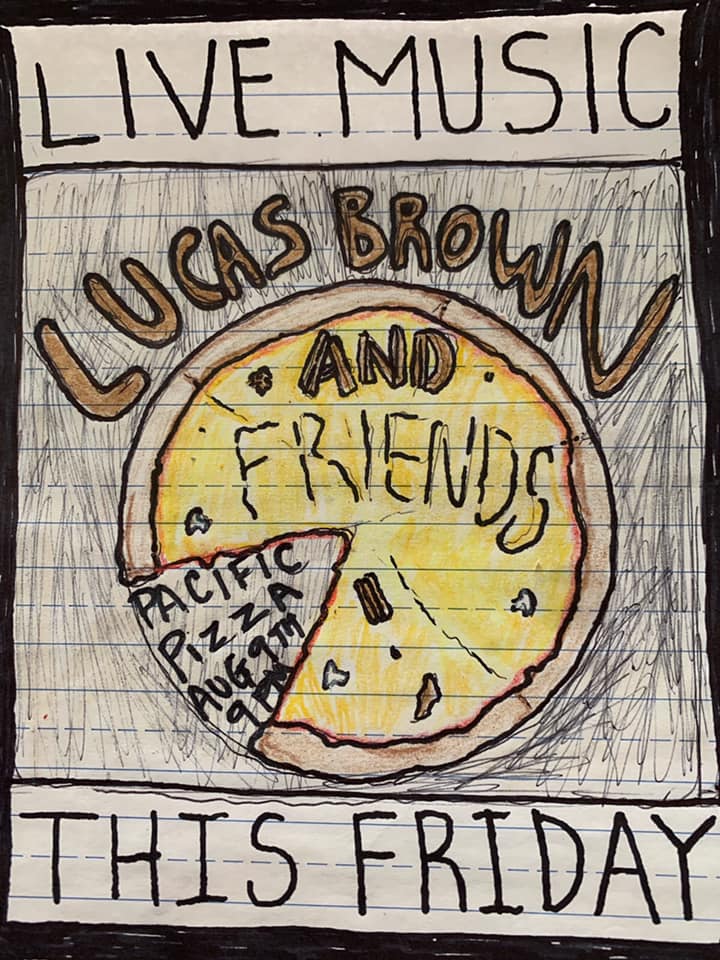 LIVE MUSIC
LUCAS BROWN
AND
FRIENDS
PACIFIC
PIZZA
AUG 9TH
9PM
THIS FRIDAY